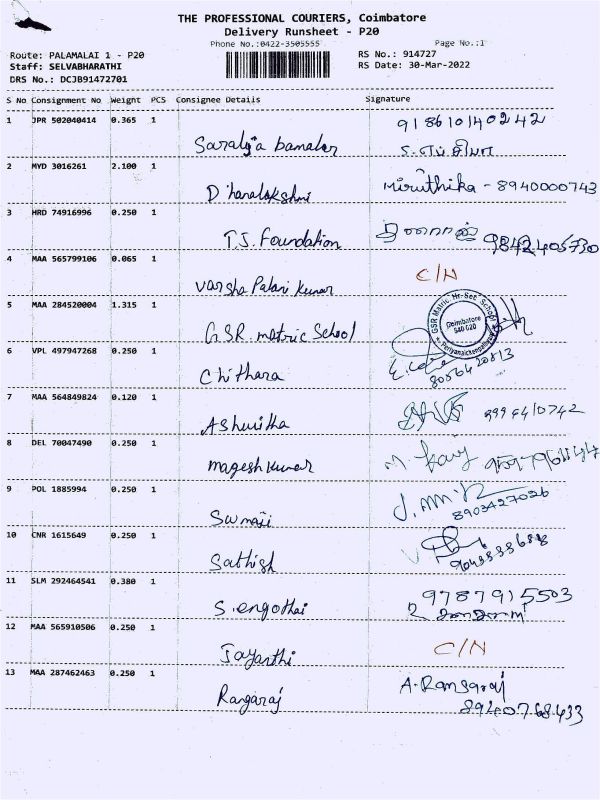 THE PROFESSIONAL COURIERS, Coimbatore
Delivery Runsheet - P20
Phone No.:0422-3505555 Page No.:1
Route: PALAMALAI 1 - P20 RS No.: 914727
Staff: SELVABHARATHI RS Date: 30-Mar-2022
DRS No.: DCJB91472701
S No Consignment No Weight PCS Consignee Details Signature
1 JPR 502040414 0.365 1 918610140242
2 MYD 3016261 2.100 1 Dhanalakshmi Miruthika - 8940000743
3 HRD 74916996 0.250 1 T.J. Foundation 9842405730
4 MAA 565799106 0.065 1 Varsha Palani Kumar C/N
5 MAA 284520004 1.315 1 G.S.R. matric School
GSR Matric Hr. Sec. School
Coimbatore
6 VPL 497947268 0.250 1 Chithara 8056420813
7 MAA 564849824 0.120 1 Ashwitha
8 DEL 70047490 0.250 1 mageshkumar
9 POL 1885994 0.250 1 8903427026
10 CNR 1615649 0.250 1 Sathish
11 SLM 292464541 0.380 1 S.engothai 9787915503
12 MAA 565910506 0.250 1 Jayanthi C/N
13 MAA 287462463 0.250 1 Rangaraj A. Rangaraj
8940768433